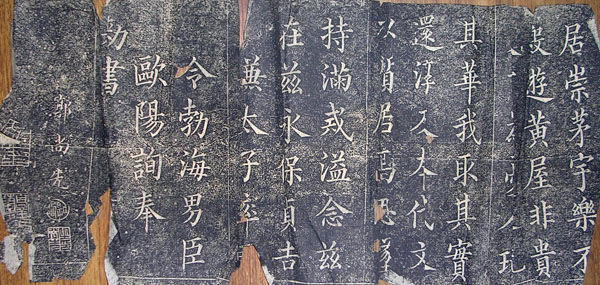 居崇茅宇樂不
遊黃屋非貴
人玩
其華我取其實
還淳反本代文
以質居高思墜
持滿戒溢念兹
在兹永保貞吉
兼太子率
令勃海男臣
歐陽詢奉
勅書
郭尚先